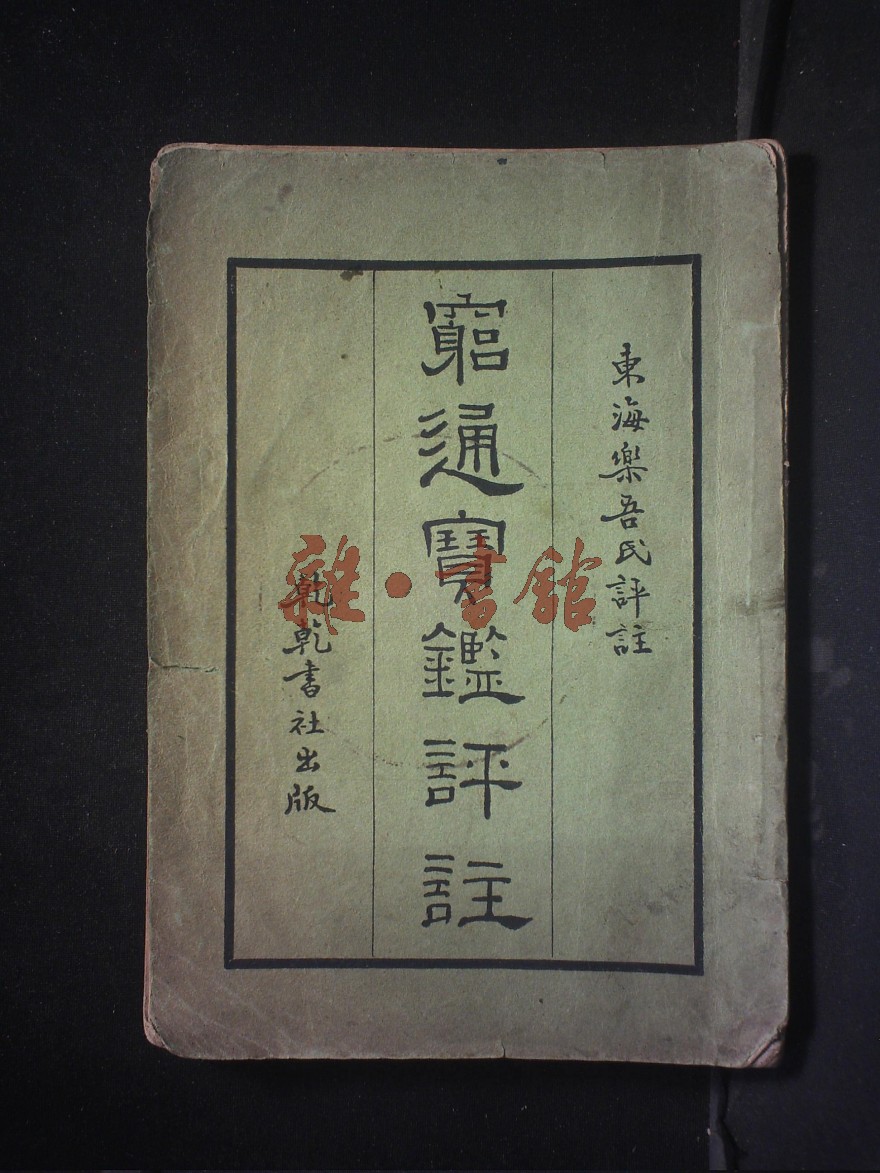 東海樂吾氏評註
窮通寶鑑評註
乾乾書社出版
雜·書館